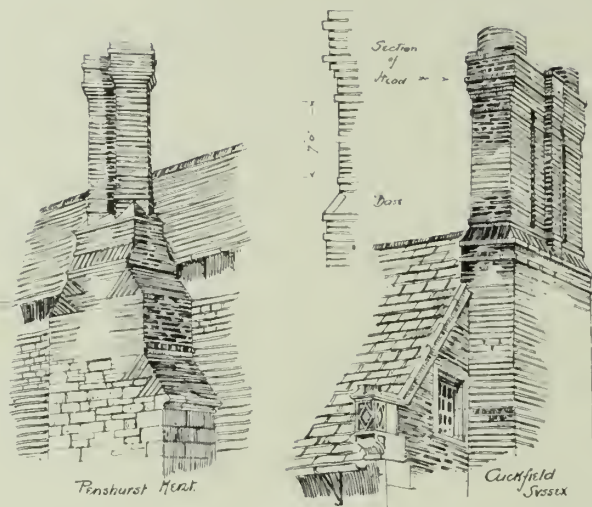 Section
of
Head
7'0"
Base
Penshurst Kent.
Cuckfield
Sussex